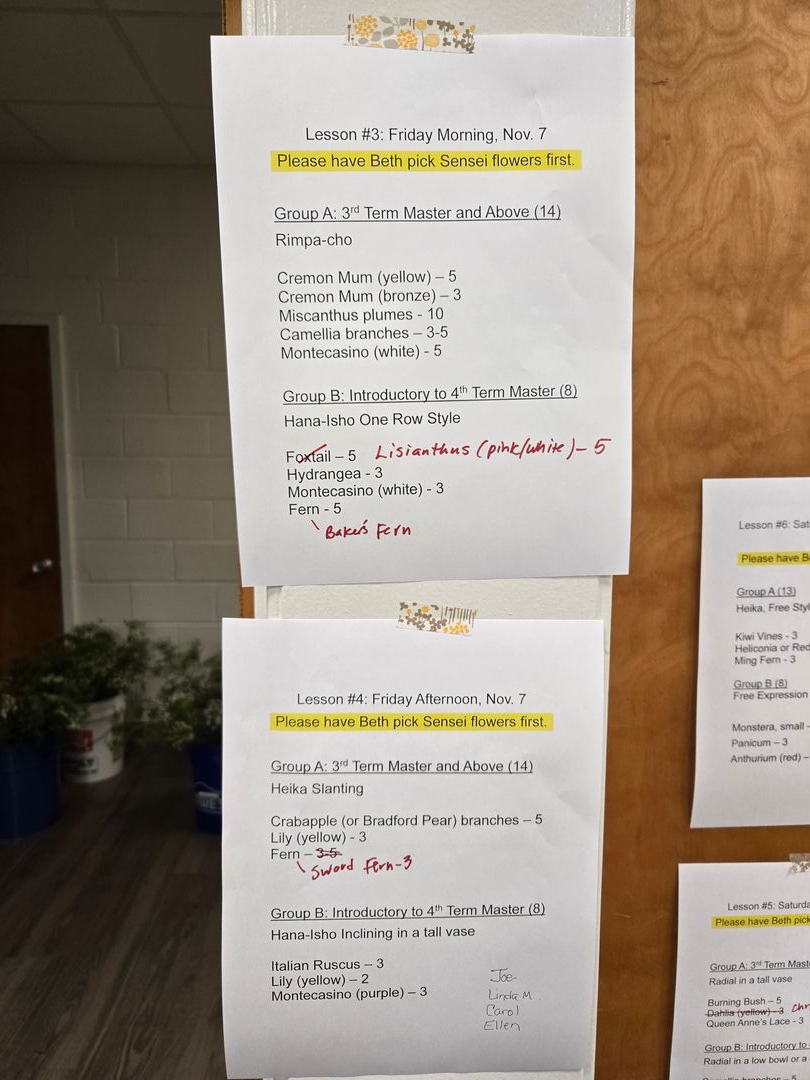 Lesson #3: Friday Morning, Nov. 7
Please have Beth pick Sensei flowers first.
Group A: 3rd Term Master and Above (14)
Rimpa-cho
Cremon Mum (yellow) – 5
Cremon Mum (bronze) – 3
Miscanthus plumes - 10
Camellia branches – 3-5
Montecasino (white) - 5
Group B: Introductory to 4th Term Master (8)
Hana-Isho One Row Style
Foxtail – 5 Lisianthus (pink/white) – 5
Hydrangea - 3
Montecasino (white) - 3
Fern - 5
Baker's Fern
Lesson #4: Friday Afternoon, Nov. 7
Please have Beth pick Sensei flowers first.
Group A: 3rd Term Master and Above (14)
Heika Slanting
Crabapple (or Bradford Pear) branches – 5
Lily (yellow) - 3
Fern – 3-5
Sword Fern-3
Group B: Introductory to 4th Term Master (8)
Hana-Isho Inclining in a tall vase
Italian Ruscus – 3
Lily (yellow) – 2
Montecasino (purple) – 3
Joe
Linda M.
Carol
Ellen
Lesson #6: Sat
Please have B
Group A (13)
Heika, Free Styl
Kiwi Vines - 3
Heliconia or Red
Ming Fern - 3
Group B (8)
Free Expression
Monstera, small -
Panicum – 3
Anthurium (red) –
Lesson #5: Saturda
Please have Beth pick
Group A: 3rd Term Maste
Radial in a tall vase
Burning Bush – 5
Dahlia (yellow) - 3 Chr
Queen Anne's Lace - 3
Group B: Introductory to
Radial in a low bowl or a